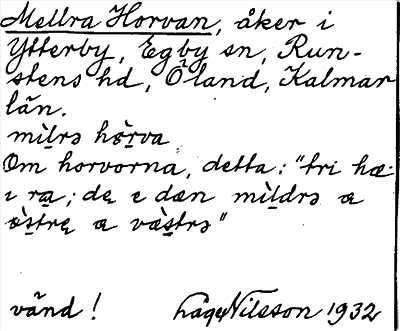 Mellra Horvan, åker i
Ytterby, Egby sn, Run-
stens hd, Öland, Kalmar
län.
mìlrə hòrva
Om horvorna, detta: "tri hæ:
ı ra; dɛ e dæn mìldrə a
östrɛ a væstrə"
vänd! Nilsson 1932